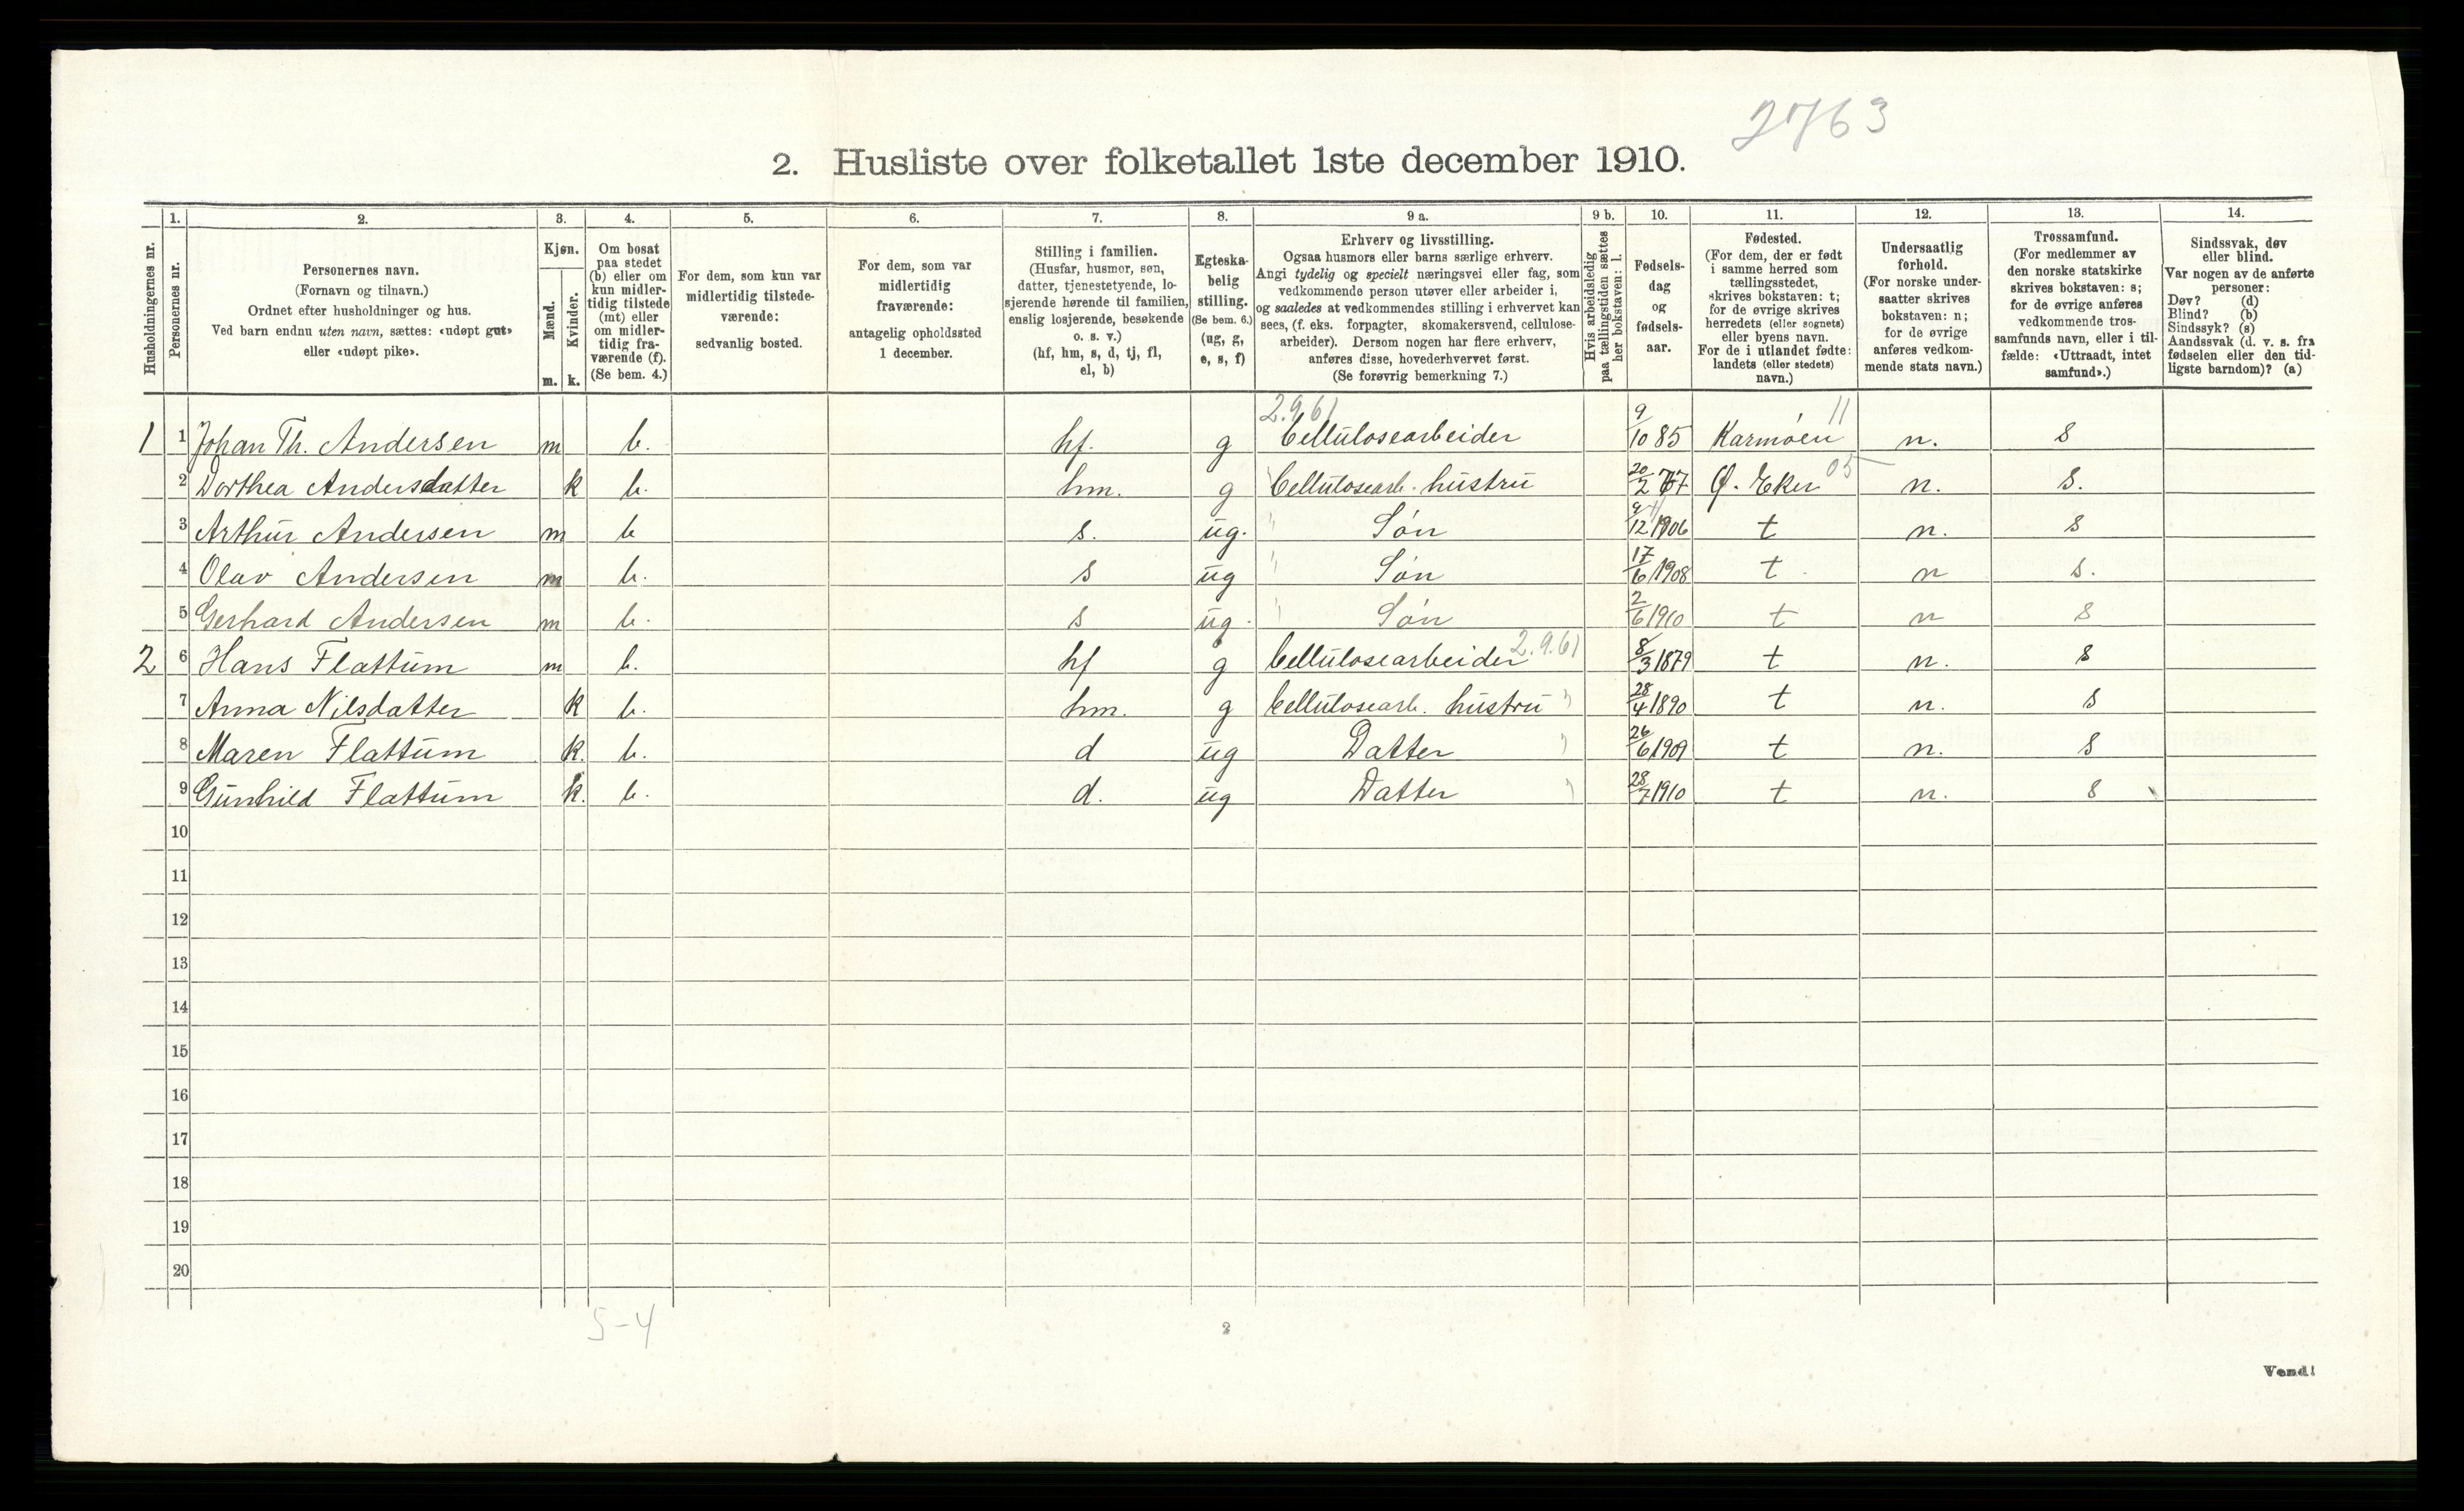 2763
2. Husliste over folketallet 1ste december 1910.
Husholdningernes nr.
1.
Personernes nr.
2.
Personernes navn.
(Fornavn og tilnavn.)
Ordnet efter husholdninger og hus.
Ved barn endnu uten navn, sættes: «udøpt gut»
eller «udøpt pike».
3.
Kjøn.
Mænd.
m.
Kvinder.
k.
4.
Om bosat
paa stedet
(b) eller om
kun midler-
tidig tilstede
(mt) eller
om midler-
tidig fra-
værende (f).
(Se bem. 4.)
5.
For dem, som kun var
midlertidig tilstede-
værende:
sedvanlig bosted.
6.
For dem, som var
midlertidig
fraværende:
antagelig opholdssted
1 december.
7.
Stilling i familien.
(Husfar, husmor, søn,
datter, tjenestetyende, lo-
sjerende hørende til familien,
enslig losjerende, besøkende
o. s. v.)
(hf, hm, s, d, tj, fl,
el, b)
8.
Egteska-
belig
stilling.
(Se bem. 6.)
(ug, g,
e, s, f)
9 a.
Erhverv og livsstilling.
Ogsaa husmors eller barns særlige erhverv.
Angi tydelig og specielt næringsvei eller fag, som
vedkommende person utøver eller arbeider i,
og saaledes at vedkommendes stilling i erhvervet kan
sees, (f. eks. forpagter, skomakersvend, cellulose-
arbeider). Dersom nogen har flere erhverv,
anføres disse, hovederhvervet først.
(Se forøvrig bemerkning 7.)
9 b.
Hvis arbeidsledig
paa tællingstiden sættes
her bokstaven: l.
10.
Fødsels-
dag
og
fødsels-
aar.
11.
Fødested.
(For dem, der er født
i samme herred som
tællingsstedet,
skrives bokstaven: t;
for de øvrige skrives
herredets (eller sognets)
eller byens navn.
For de i utlandet fødte:
landets (eller stedets)
navn.)
12.
Undersaatlig
forhold.
(For norske under-
saatter skrives
bokstaven: n;
for de øvrige
anføres vedkom-
mende stats navn.)
13.
Trossamfund.
(For medlemmer av
den norske statskirke
skrives bokstaven: s;
for de øvrige anføres
vedkommende tros-
samfunds navn, eller i til-
fælde: «Uttraadt, intet
samfund».)
14.
Sindssvak, døv
eller blind.
Var nogen av de anførte
personer:
Døv? (d)
Blind? (b)
Sindssyk? (s)
Aandssvak (d. v. s. fra
fødselen eller den tid-
ligste barndom)? (a)
2.9.61 11
1 1 Johan Th. Andersen m b. hf. g Cellulosearbeider 9/10 85 Karmøen n. s
2 Dorthea Andersdatter k b. hm. g Cellulosearb. hustru 20/2 77 Ø. Eker 05 n. s.
3 Arthur Andersen m b s. ug. " Søn 9/12 1906 t n. s
4 Olav Andersen m b. s ug " Søn 17/6 1908 t n s.
5 Gerhard Andersen m b. s ug. " Søn 2/6 1910 t n s
2 6 Hans Flattum m b. hf g Cellulosearbeider 2.9.61 8/3 1879 t n. s
7 Anna Nilsdatter k b. hm. g Cellulosearb. hustru " 28/4 1890 t n. s
8 Maren Flattum k. b. d ug Datter " 26/6 1909 t n. s
9 Gunhild Flattum k. b. d. ug Datter " 28/7 1910 t n. s
10
11
12
13
14
15
16
17
18
19
20
5-4
2
Vend!